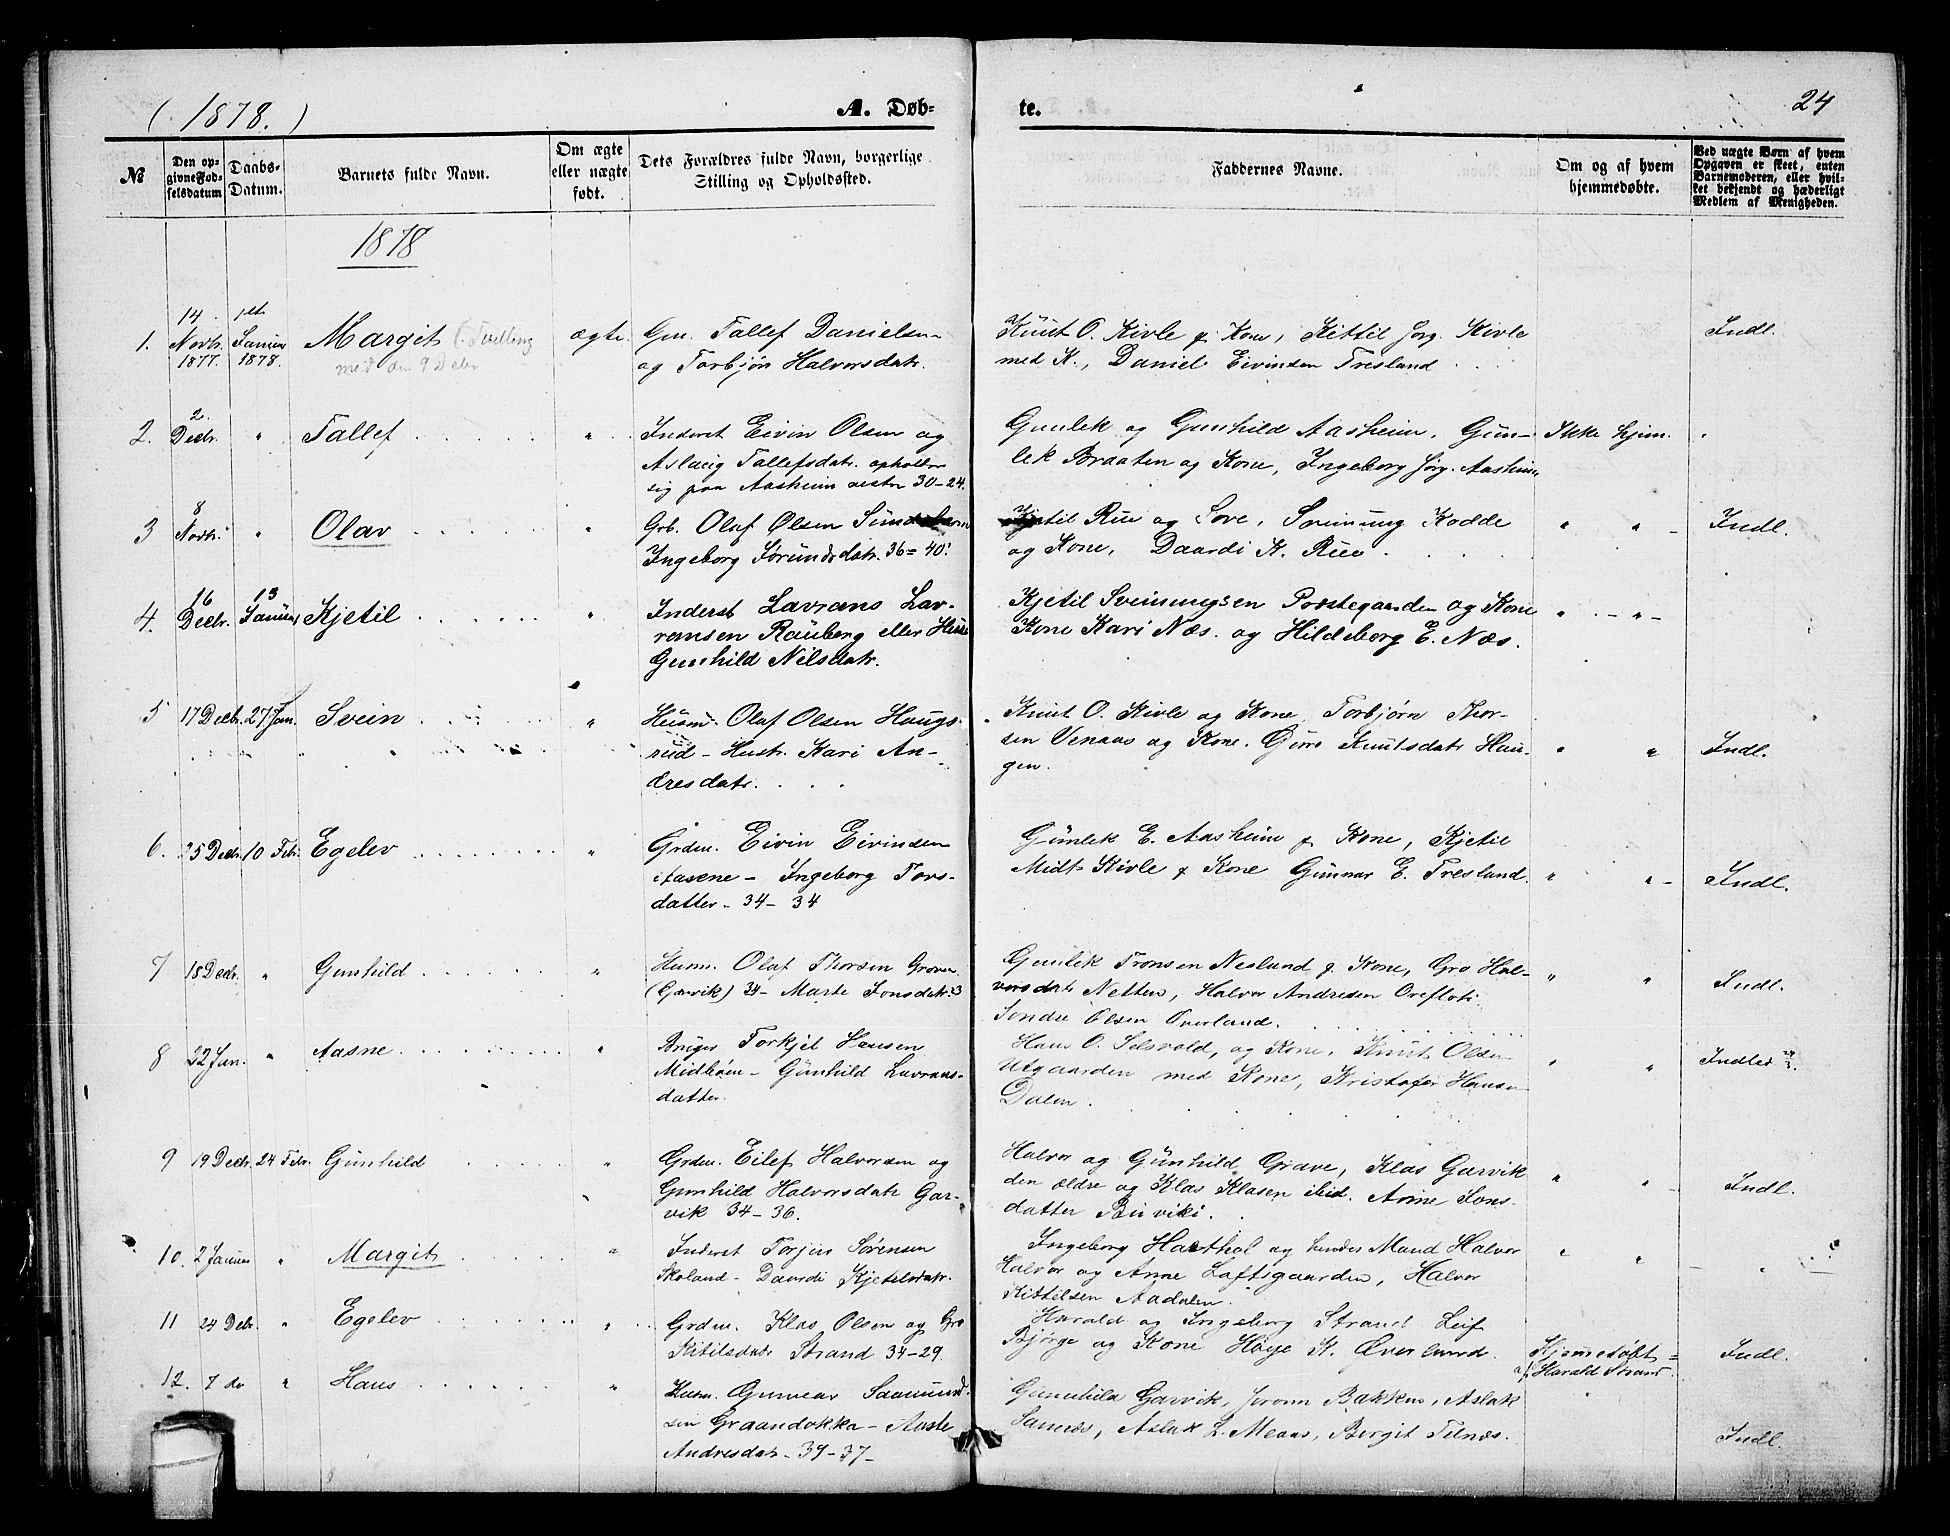 ( 1878. )
A. Døb-
te.
24
№
Den op-
givne Fød-
selsdatum
Daabs-
Datum.
Barnets fulde Navn.
Om ægte
eller uægte
født.
Dets Forældres fulde Navn, borgerlige
Stilling og Opholdssted.
Faddernes Navne.
Om og af hvem
hjemmedøbte.
Ved uægte Børn af hvem
Opgaven er skeet, enten
Barnemoderen, eller hvil-
ket bekjendt og hæderligt
Medlem af Menigheden.
1878
1.
14.
Novbr.
1877.
1ste
Januar
1878.
Margit (Tvilling
med den 9 Debr
ægte.
Gm. Tallef Danielsen
og Torbjør Halvorsdatr.
Knut O. Kivle & Kone, Kittil Jørg. Kivle
med K., Daniel Eivindsen Tresland
Indl.
2.
2.
Decbr.
"
Tallef
"
Inderst Eivin Olsen og
Aslaug Tallefsdatr. opholder
sig paa Aasheim 30-24.
Gunlek og Gunhild Aasheim, Gun-
lek Braaten og Kone, Ingeborg Jørg. Aasheim
Ikke hjem.
3
8
Novbr.
"
Olav
"
Grb. Olaf Olsen
Ingeborg Jørundsdatr. 36-40.
Kjetil Rue og Tove, Sveinung Kodde
og Kone, Daardi K. Rue.
" "
Indl.
4.
16
Decbr.
13
Januar
Kjetil
"
Inderst Lavrans Lav-
ransen Rauberg eller
Gunhild Nilsdatr.
Kjetil Sveinungsen Prestegaarden og Kone
Kone Kari Næs. og Hildeborg E. Næs.
" "
5
17 Decbr.
27 Jan.
Svein
"
Husm. Olaf Olsen Haugs-
rud - Hustr. Kari An-
dresdatr.
Knut O. Kivle og Kone, Torbjørn Thor-
sen Venaas og Kone. Guro Knutsdatr Hau-
gen.
" "
Indl.
6.
25 Decbr.
10 Febr.
Egelev
"
Grdm. Eivin Eivindsen
- Ingeborg Tors-
datter - 34-34
Gunlek E. Aasheim & Kone, Kjetil
Midt-Kivle & Kone Gunnar E. Tresland.
" "
Indl.
7
18 Decbr.
"
Gunhild
"
Husm. Olaf Thorsen Graver
(Garvik) 34- Marte Jonsdatr. 33
Gunlik Tronsen Nesland & Kone, Gro Hal-
vorsdatr Netten, Halvor Andresen Orefloti
Søndre Olsen Overland.
" "
Indl.
8
22 Jan.
"
Aasne
"
Bruger Torkjel Hansen
Midbøen - Gunhild Lavrans-
datter.
Hans O. Selsvold, og Kone, Knut Olsen
Utgaarden med Kone, Kristofer Hansen
Dalen.
" "
Indled
9
19 Decbr.
24 Febr.
Gunhild
"
Grdm. Eilef Halvorsen og
Gunhild Halvorsdatr Gar-
vik 34-36.
Halvor og Gunhild Grave, Klas Garvik
den ældre og Klas Klasen ibid. Anne Jons-
datter Buviki.
" "
Indl.
10.
2 Januar
"
Margit
"
Inderst Torjus Sørensen
Skoland - Daardi Kjetelsdatr.
Ingeborg Harthol og hendes Mand Halvor
Halvor og Anne Loftsgaarden, Halvor
Kittelsen Aadalen.
" "
"
11
24 Debr.
"
Egelev
"
Grdm. Klas Olsen og Gro
Kitilsdatr Strand 34-29.
Harald og Ingeborg Strand Leif
Bjørge og Kone Høye K. Øverland.
Hjemmedøbt =
af Harald Strand
Indl.
12.
7 do
"
Hans
"
Husm. Gunnar Saamund-
sen Graandokka - Aaste
Andresdatr - 39-37-
Gunnhild Garvik, Joronn Bakken, Aslak
Samnes, Aslak L. Meaas, Bergit Telnæs.
Indl.